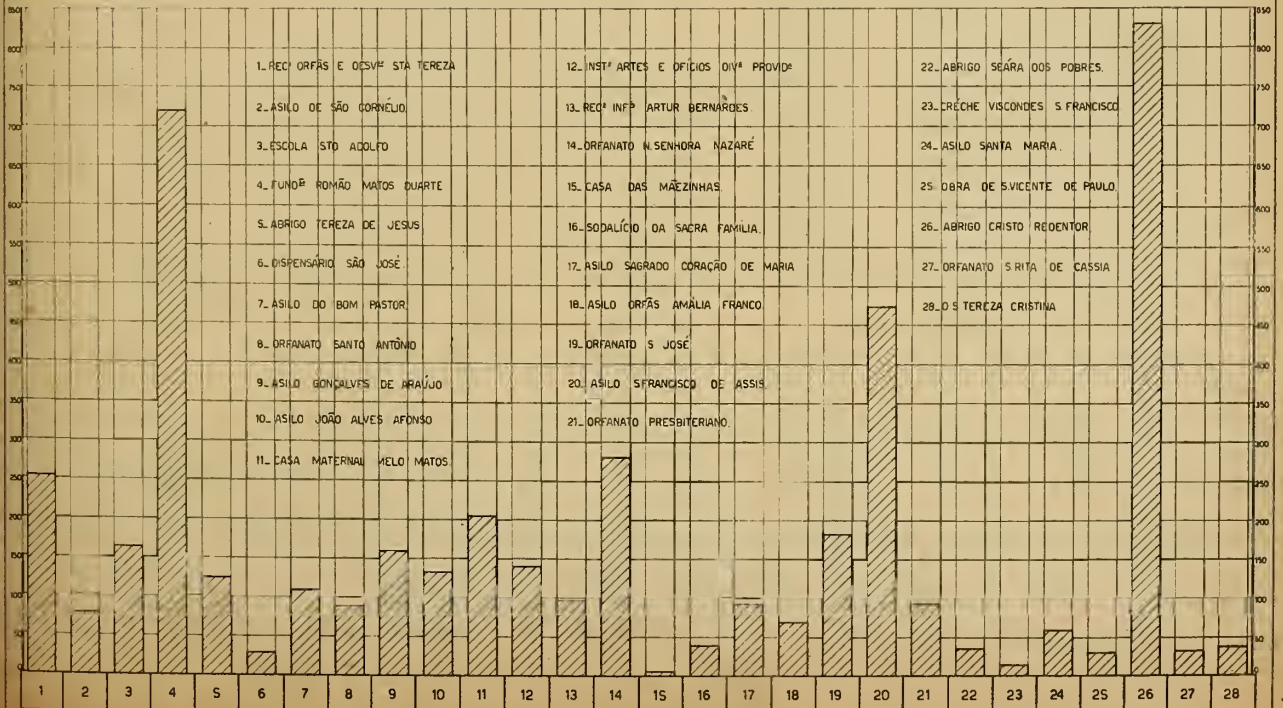 850
800
750
700
650
600
550
500
450
400
350
300
250
200
150
100
50
0
1_RECº ORFÃS E DESVᴬˢ STA TEREZA
2_ASILO DE SÃO CORNÉLIO
3_ESCOLA STO ADOLFO
4_FUNDᴼ ROMÃO MATOS DUARTE
5_ABRIGO TEREZA DE JESUS
6_DISPENSÁRIO SÃO JOSÉ
7_ASILO DO BOM PASTOR
8_ORFANATO SANTO ANTÔNIO
9_ASILO GONÇALVES DE ARAÚJO
10_ASILO JOÃO ALVES AFONSO
11_CASA MATERNAL MELO MATOS
12_INSTº ARTES E OFÍCIOS DIVª PROVIDª
13_RECº INFᴸ ARTUR BERNARDES
14_ORFANATO N.SENHORA NAZARÉ
15_CASA DAS MÃEZINHAS.
16_SODALÍCIO DA SACRA FAMÍLIA.
17_ASILO SAGRADO CORAÇÃO DE MARIA
18_ASILO ORFÃS AMÁLIA FRANCO.
19_ORFANATO S JOSÉ
20_ASILO S FRANCISCO DE ASSIS.
21_ORFANATO PRESBITERIANO.
22_ABRIGO SEÁRA DOS POBRES.
23_CRÉCHE VISCONDES S.FRANCISCO
24_ASILO SANTA MARIA.
25_OBRA DE S.VICENTE DE PAULO.
26_ABRIGO CRISTO REDENTOR.
27_ORFANATO S.RITA DE CASSIA
28_O S TEREZA CRISTINA
850
800
750
700
650
600
550
500
450
400
350
300
250
200
150
100
50
0
1 2 3 4 5 6 7 8 9 10 11 12 13 14 15 16 17 18 19 20 21 22 23 24 25 26 27 28